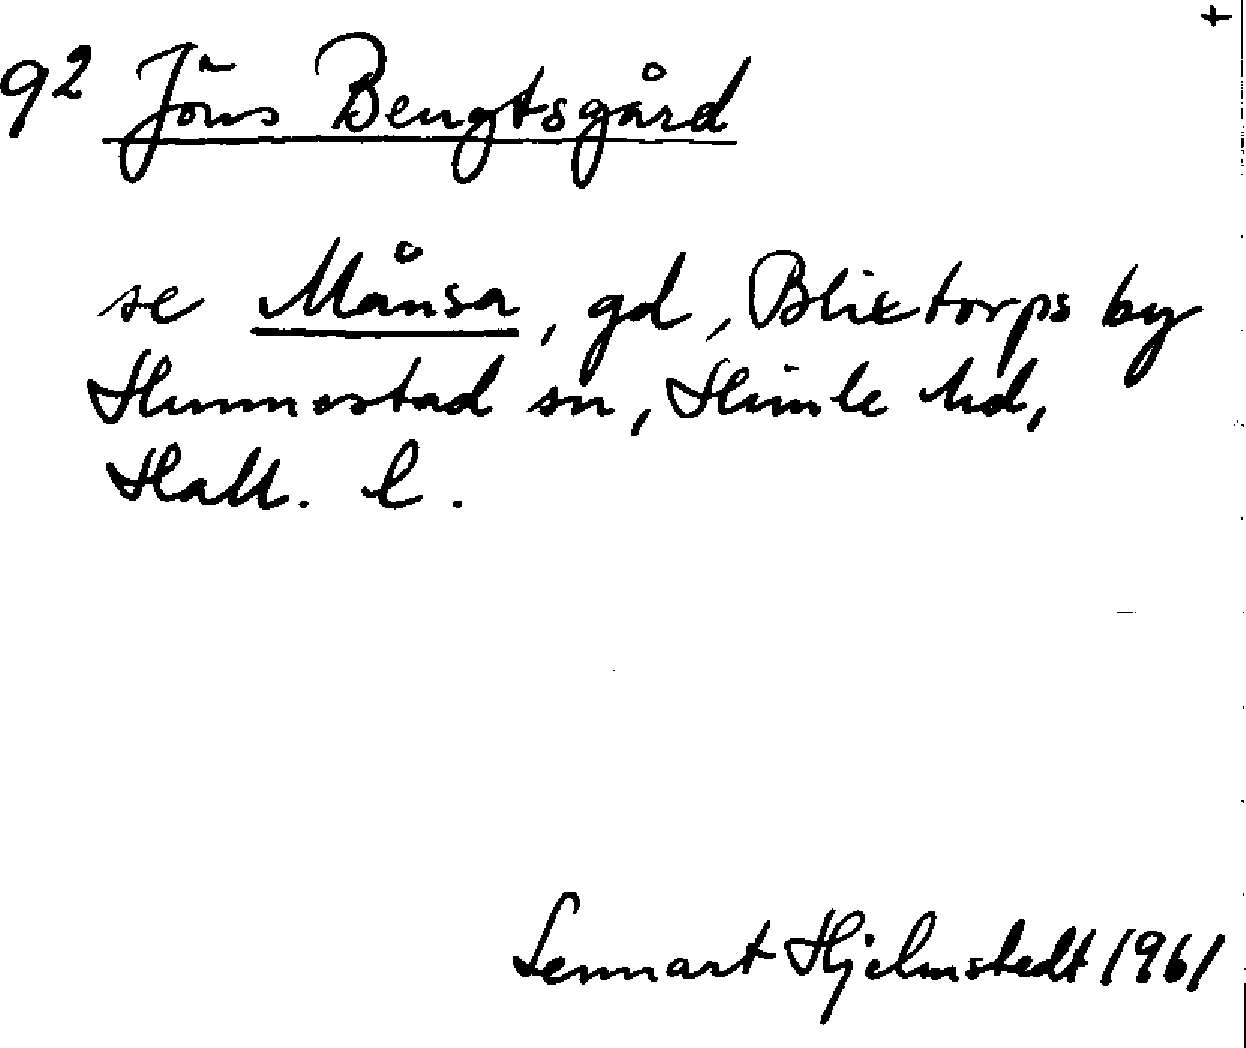 +
92 Jöns Bengtsgård
se Månsa, gd, Blixtorps by
Hunnestad sn, Himle hd,
Hall. l.
Lennart Hjelmstedt 1961